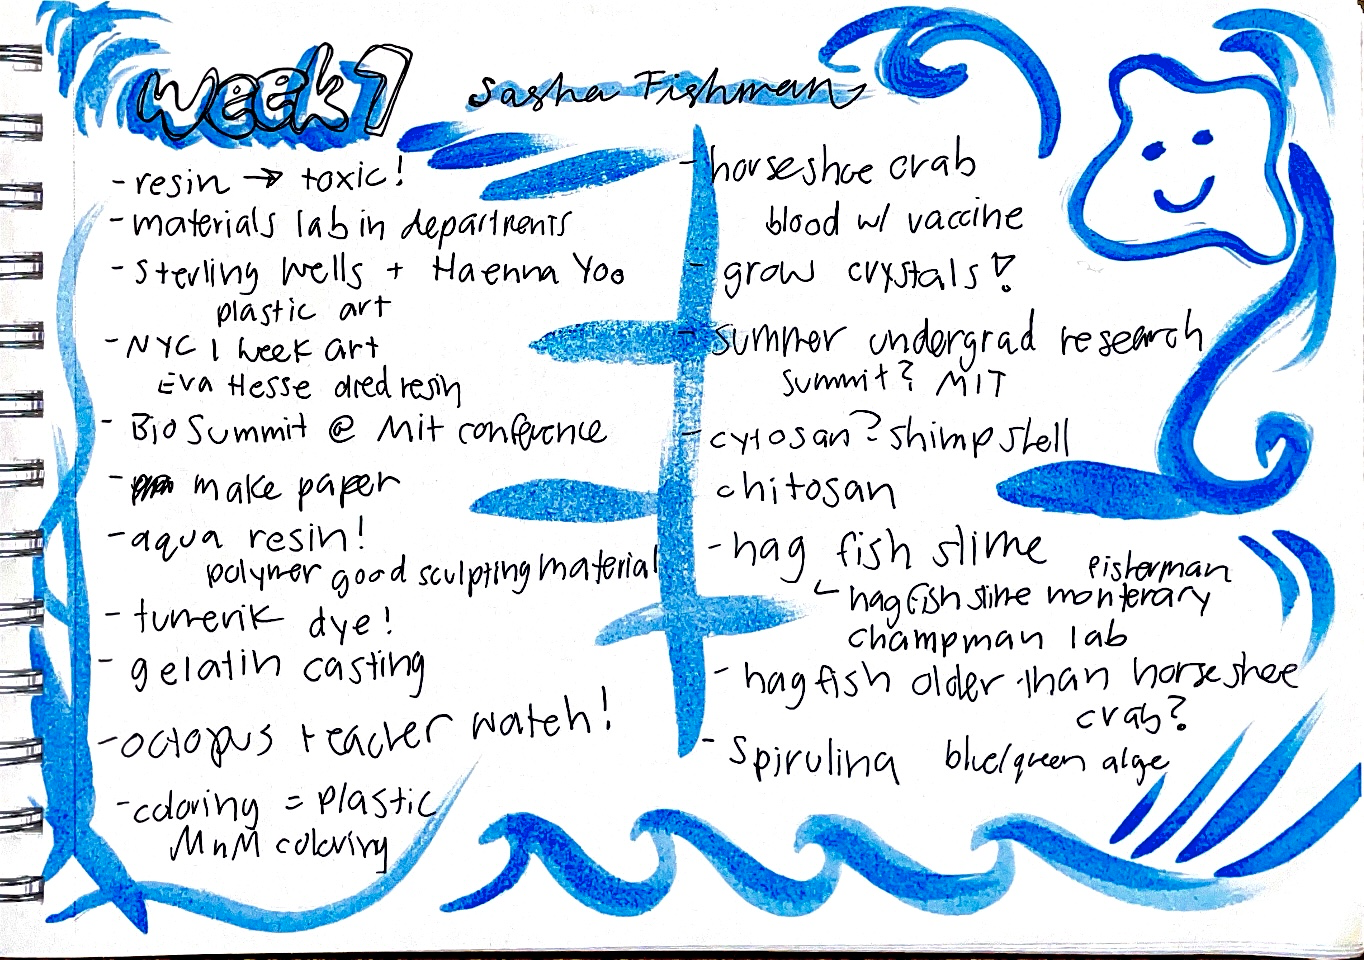 week 1
Sasha Fishman
- resin → toxic!
- materials lab in departments
- Sterling Wells + Haenna Yoo
plastic art
- NYC 1 week art
Eva Hesse died resin
- Bio Summit @ Mit conference
- make paper
- aqua resin!
polymer good sculpting material
- tumerik dye!
- gelatin casting
- octopus teacher watch!
- coloring = plastic
MnM coloring
- horseshoe crab
blood w/ vaccine
- grow crystals!
- summer undergrad research
summit? MIT
- cytosan? shimp shell
chitosan
- hag fish slime
fisherman
hagfish slime monterary
champman lab
- hagfish older than horseshee
crab?
- Spirulina blue/green alge